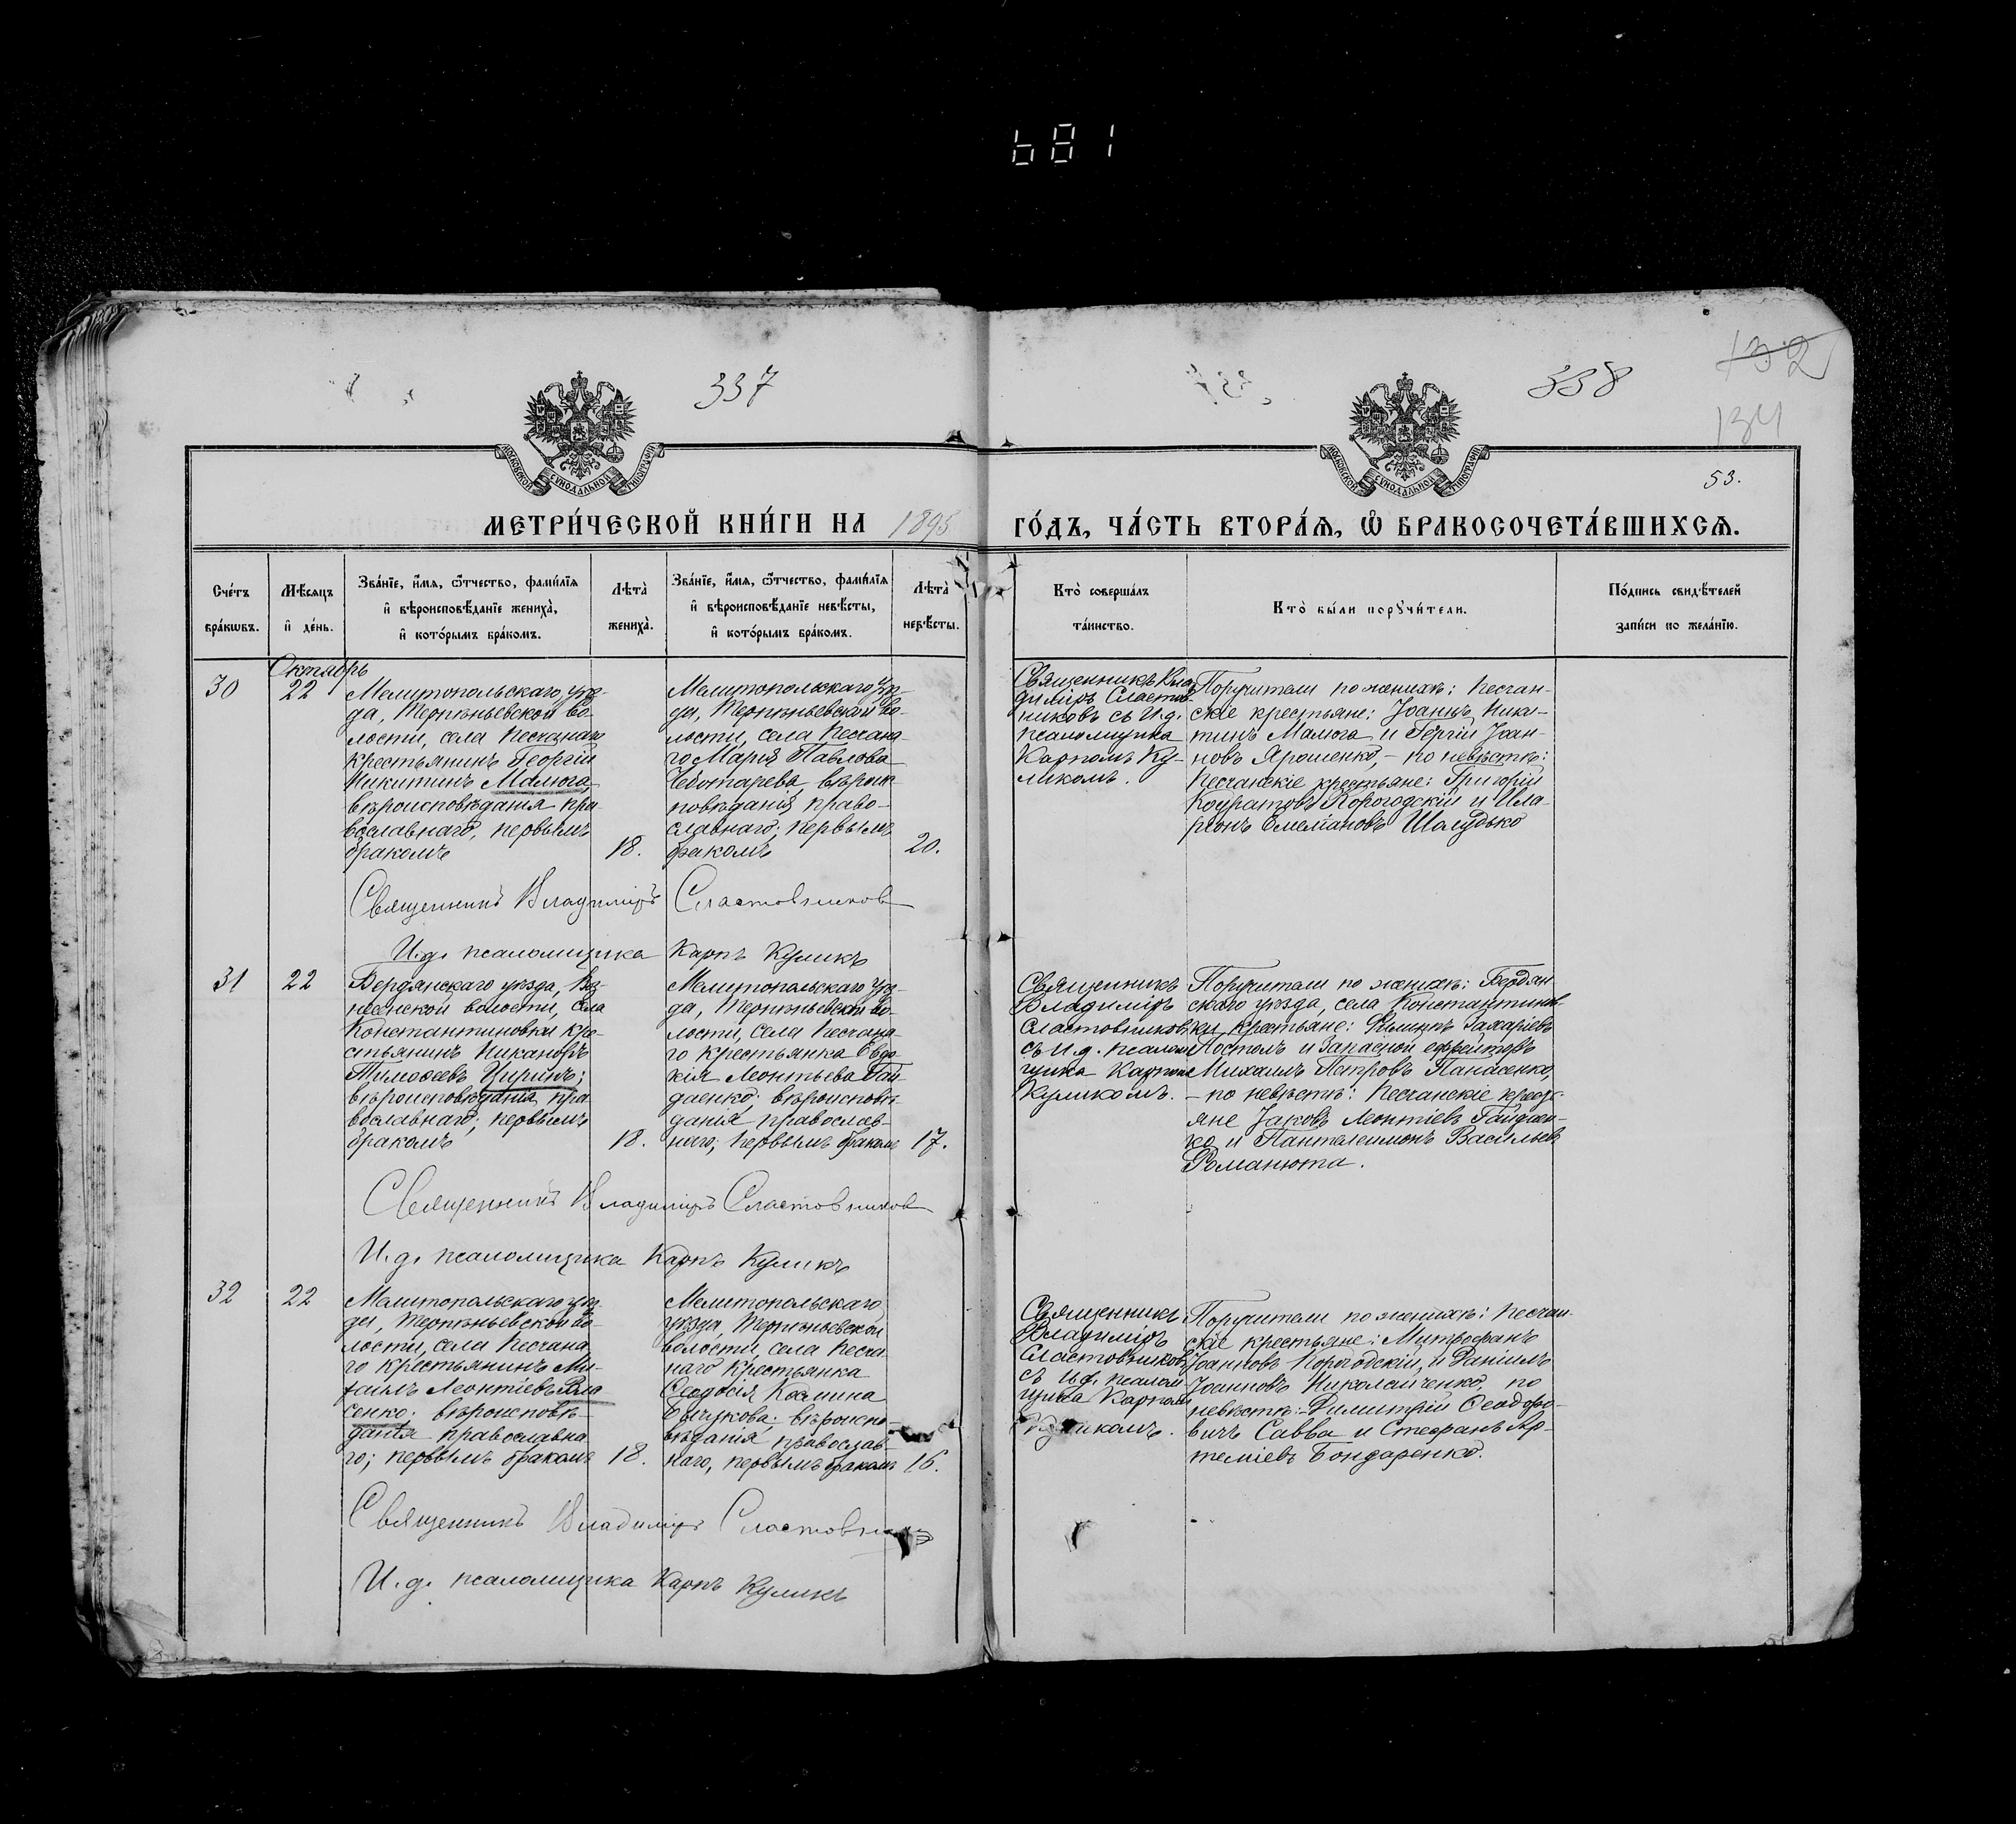 681
337
338
132
134
53.
МЕТРИ́ЧЕСКОЙ КНИ́ГИ НА 1895
ГО́ДЪ, ЧА́СТЬ ВТОРА́Ѧ, Ѽ БРАКОСОЧЕТА́ВШИХСѦ.
Сче́тъ
бра́кѡвъ.
Мѣ́сяцъ
и҆ де́нь.
Зва́нїе, и҆́мѧ, ѻ҆́тчество, фами́лїѧ
и҆ вѣроисповѣ́данїе жениха̀,
и҆ кото́рымъ бра́комъ.
Лѣта̀
жениха̀.
Зва́нїе, и҆́мѧ, ѻ҆́тчество, фами́лїѧ
и҆ вѣроисповѣ́данїе невѣ́сты,
и҆ кото́рымъ бра́комъ.
Лѣта̀
невѣ́сты.
Кто̀ соверша́лъ
та́инство.
Кто̀ бы́ли порꙋчи́тели.
По́дпись свидѣ́телей
за́писи по жела́нїю.
Октябрь
30
22
Мелитопольскаго уѣз-
да, Терпѣньевской во-
лости, села Песчанаго
крестьянинъ Георгій
Никитинъ Малюга,
вѣроисповѣданія пра-
вославнаго, первымъ
бракомъ
18.
Мелитопольскаго уѣз-
да, Терпѣньевской во-
лости, села Песчана-
го Марія Павлова
Чеботарева, вѣроис-
повѣданія право-
славнаго; первымъ
бракомъ
20.
Священникъ Вла-
диміръ Сластов-
никовъ съ И.д.
псаломщика
Карпомъ Ку-
ликомъ.
Поручители по женихѣ: Песчан-
скіе крестьяне: Іоаннъ Ники-
тинъ Малюга и Георгій Іоан-
новъ Ярошенко, - по невѣстѣ:
Песчанскіе крестьяне: Григорій
Кондратовъ Порогодскій и Ила-
ріонъ Емеліановъ Шалудько
Священникъ Владиміръ Сластовниковъ
И.д. псаломщика Карпъ Куликъ
31
22
Бердянскаго уѣзда, Воз-
несенской волости, села
Константиновки кре-
стьянинъ Никаноръ
Тимоѳеевъ Циринъ;
вѣроисповѣданія пра-
вославнаго; первымъ
бракомъ
18.
Мелитопольскаго уѣз-
да, Терпѣньевской во-
лости, села Песчана-
го крестьянка Евдо-
кія Леонтьева Гай-
даенко; вѣроисповѣ-
данія православ-
наго; первымъ бракомъ
17.
Священникъ
Владиміръ
Сластовниковъ
съ И.д. псалом-
щика Карпомъ
Куликомъ.
Поручители по женихѣ: Бердян-
скаго уѣзда, села Константинов-
ки, крестьяне: Филиппъ Захаріевъ
Постолъ и Запасной ефрейторъ
Михаилъ Петровъ Панасенко,
- по невѣстѣ: Песчанскіе кресть-
яне Іаковъ Леонтіевъ Гайдаен-
ко и Пантелеимонъ Васильевъ
Романюта.
Священникъ Владиміръ Сластовниковъ
И.д. псаломщика Карпъ Куликъ
32
22
Мелитопольскаго уѣз-
да, Терпѣньевской во-
лости, села Песчана-
го крестьянинъ Ми-
хаилъ Леонтіевъ Вла-
сенко; вѣроисповѣ-
данія православна-
го; первымъ бракомъ
18.
Мелитопольскаго
уѣзда, Терпѣньевской
волости, села Песча-
наго крестьянка
Ѳеодосія Космина
Бычкова; вѣроиспо-
вѣданія православ-
наго, первымъ бракомъ
16.
Священникъ
Владиміръ
Сластовниковъ
съ и.д. псалом-
щика Карпомъ
Куликомъ.
Поручители по женихѣ: Песчан-
скіе крестьяне: Митрофанъ
Іоанновъ Порогодскій, и Даніилъ
Іоанновъ Николайченко, по
невѣстѣ: - Димитрій Ѳеодоро-
вичъ Савва и Стефанъ Ар-
теміевъ Бондаренко.
Священникъ Владиміръ Сластовниковъ
И.д. псаломщика Карпъ Куликъ